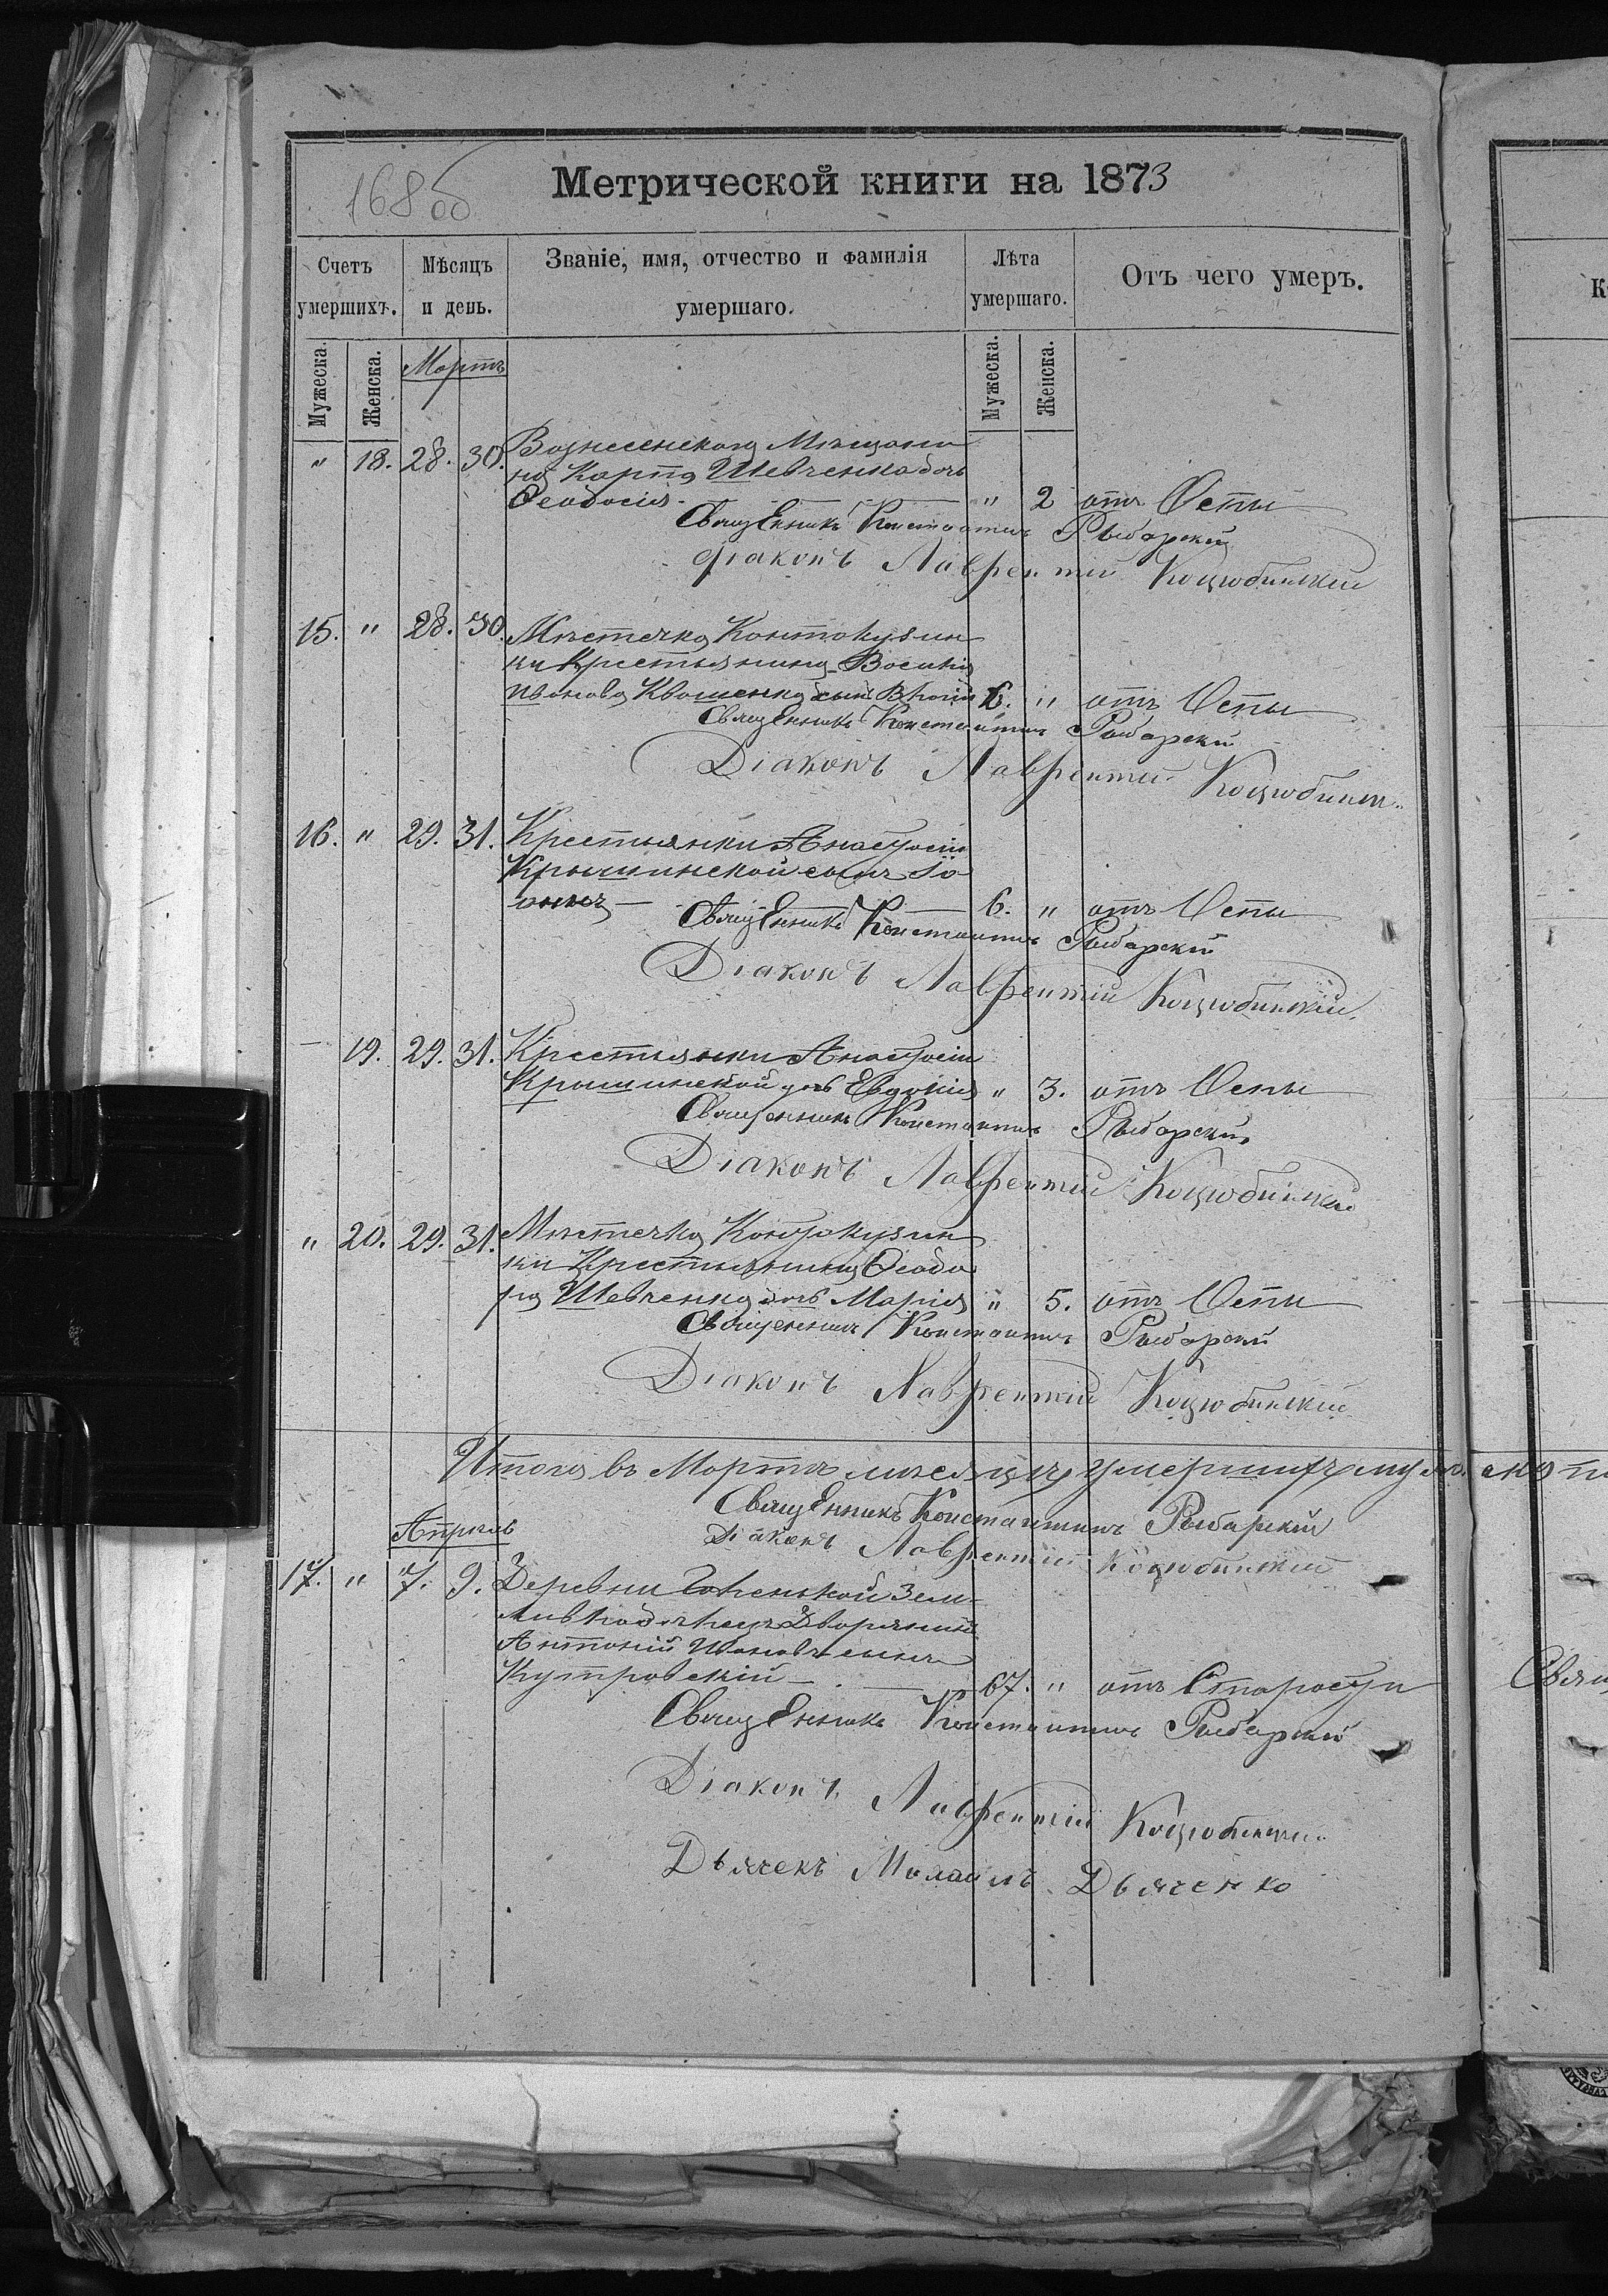 168 об
Метрической книги на 1873
Счетъ умершихъ.
Мѣсяцъ и день.
Званіе, имя, отчество и фамилія умершаго.
Лѣта умершаго.
Отъ чего умеръ.
Мужеска. Женска. Мартъ Мужеска. Женска.
" 18. 28. 30. Вознесенскаго Мѣщани
на Карпа Шевченка дочь
Ѳеодосія " 2 отъ Оспы
Священникъ Константинъ Рыбарскій
Діаконъ Лаврентій Коцюбинскій
15. " 28. 30. Мѣстечка Контокузин
ки Крестьянина Василія
Иванова Квашенка сынъ 6. " отъ Оспы
Священникъ Константинъ Рыбарскій
Діаконъ Лаврентій Коцюбинск
16. " 29. 31. Крестьянки Анастасіи
Крышинской сынъ Іо
аннъ 6. " отъ Оспы
Священникъ Константинъ Рыбарскій
Діаконъ Лаврентій Коцюбинскій.
19. 29. 31. Крестьянки Анастасіи
Крышинской дочь Евдокія " 3. отъ Оспы
Священникъ Константинъ Рыбарскій
Діаконъ Лаврентій Коцюбинскій
" 20. 29. 31. Мѣстечка Контокузин
ки Крестьянина Ѳеодо
ра Шевченка дочь Марія " 5. отъ Оспы
Священникъ Константинъ Рыбарскій
Діаконъ Лаврентій Коцюбинскій
Итого въ Мартѣ мѣсяцѣ умершихъ муж.
Священникъ Константинъ Рыбарскій
Апрель Діаконъ Лаврентій Коцюбинскій
17. " 7. 9. Деревни Зем-
Дворянинъ
Антоній Ивановъ сынъ
Кутровскій 67. " отъ Старости
Священникъ Константинъ Рыбарскій
Діаконъ Лаврентій Коцюбинскій
Дьячекъ Дьяченко